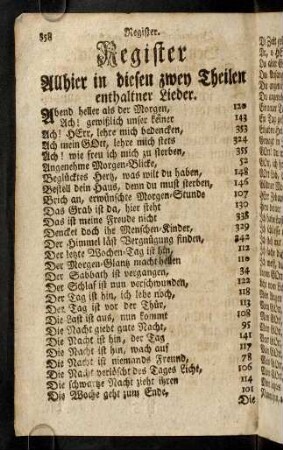 858 Register.
Register
Allhier in diesen zwey Theilen
enthaltner Lieder.
Abend heller als der Morgen, 120
Ach! gewißlich unser keiner 143
Ach! HErr, lehre mich bedencken, 353
Ach mein GOtt, lehre mich stets 324
Ach! wie freu ich mich zu sterben, 355
Angenehme Morgen-Blicke, 52
Beglücktes Hertz, was wilt du haben, 148
Bestell dein Haus, denn du must sterben, 146
Brich an, erwünschte Morgen-Stunde 107
Das Grab ist da, hier steht 130
Das ist meine Freude nicht 338
Dencket doch ihr Menschen-Kinder, 329
Der Himmel läst Vergnügung finden, 342
Der letzte Wochen-Tag ist hin, 112
Der Morgen-Glantz macht hellen 110
Der Sabbath ist vergangen, 34
Der Schlaf ist nun verschwunden, 122
Der Tag ist hin, ich lebe noch, 118
Der Tag ist vor der Thür, 113
Die Last ist aus, nun kommt 108
Die Nacht giebt gute Nacht, 95
Die Nacht ist hin, der Tag 141
Die Nacht ist hin, wach auf 117
Die Nacht ist niemands Freund, 78
Die Nacht verlöscht des Tages Licht, 106
Die schwartze Nacht zieht ihren 114
Die Woche geht zum Ende, 101
Die